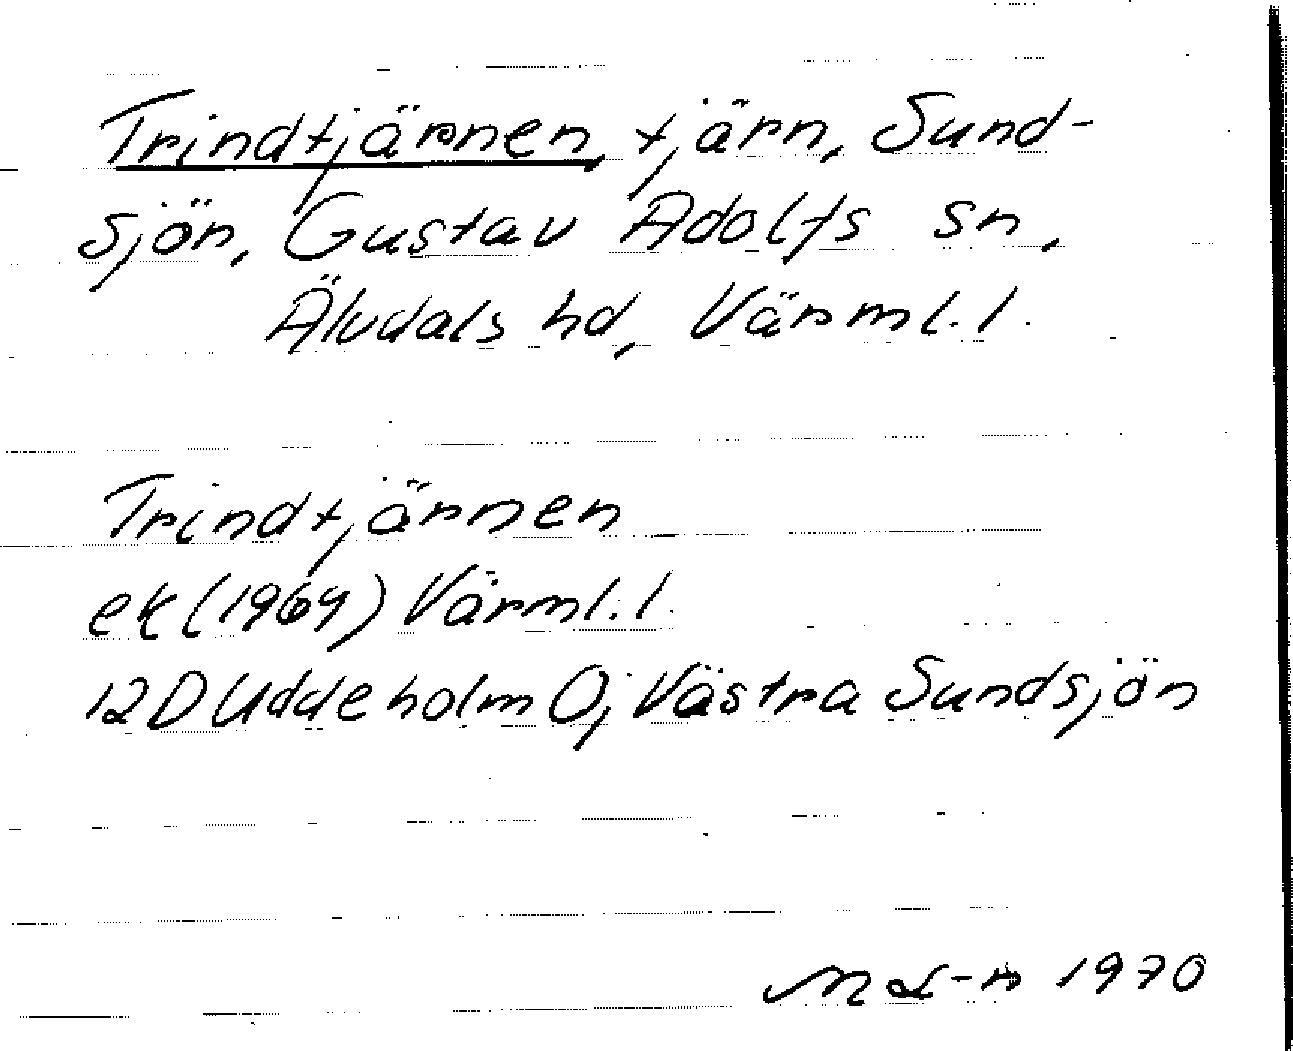 Trindtjärnen, tjärn, Sund-
sjön, Gustav Adolfs sn,
Älvdals hd, Värml. l.
Trindtjärnen
ek (1964) Värml. l.
12D Uddeholm Oj Västra Sundsjön
1970